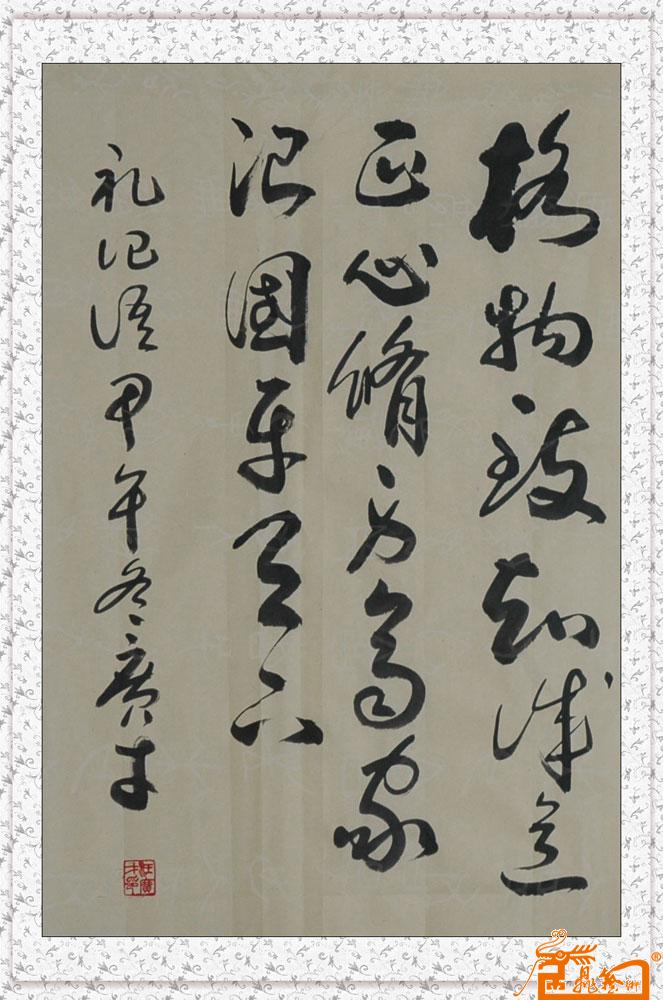 格物致知诚意
正心脩身齐家
治国平天下
礼记语甲午冬广才